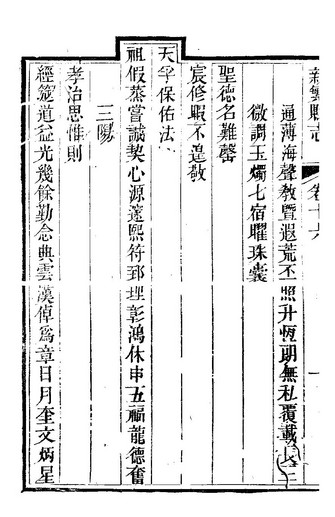 新繁縣志 卷十六
通薄海聲教暨遐荒丕照升恆期無私覆載
微調玉燭七宿曜珠囊
聖德名難罄
宸修暇不遑敬
天孚保佑法
祖假蒸嘗誠契心源邃熙符郅理彰鴻休申五福龍德奮
三陽
孝治思惟則
經筵道益光幾餘勤念典雲漢倬爲章日月奎文炳星